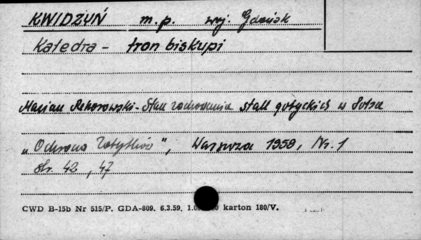 KWIDZYŃ m.p. woj. Gdańsk
Katedra - tron biskupi
Marian Stan zachowania stall gotyckich w Polsce
"Ochrona Zabytków", Warszawa 1958, Nr. 1
str. 42, 47
CWD B-15b Nr 515/P. GDA-809. 6.2.59. karton 180/V.